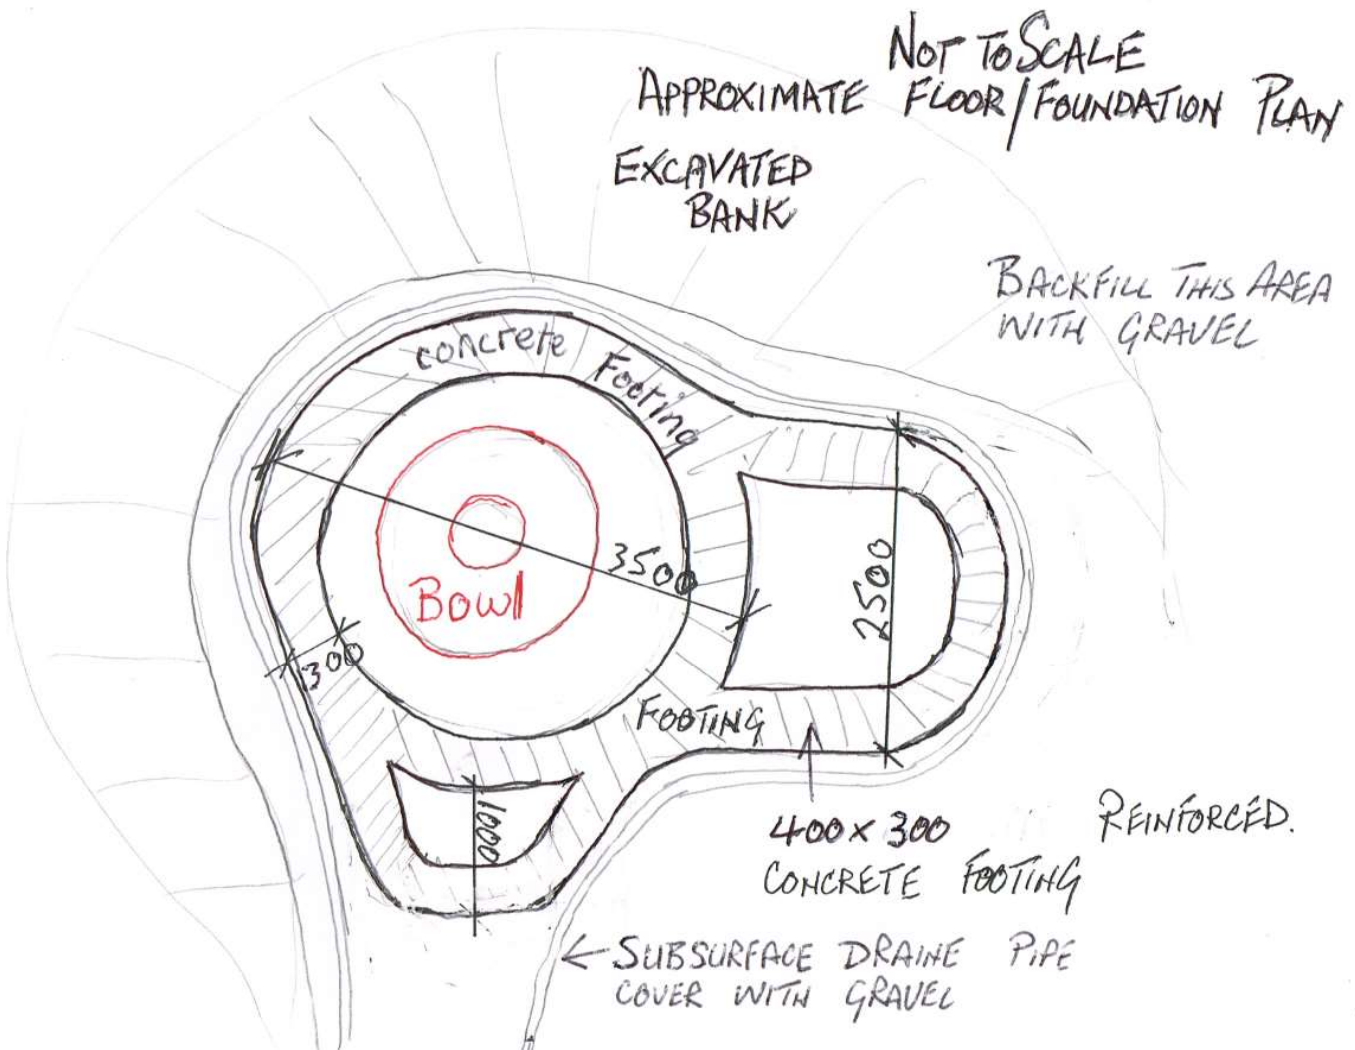 NOT TO SCALE
APPROXIMATE FLOOR/FOUNDATION PLAN
EXCAVATED
BANK
BACKFILL THIS AREA
WITH GRAVEL
concrete Footing
3500
2500
Bowl
300
FOOTING
1000
400 x 300 REINFORCED.
CONCRETE FOOTING
← SUBSURFACE DRAINE PIPE
COVER WITH GRAVEL